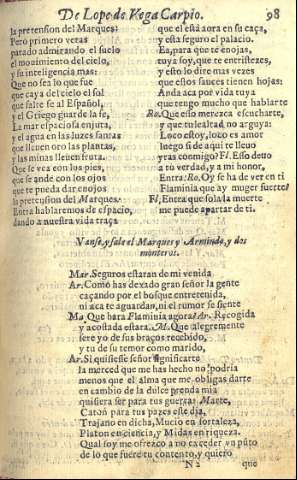 De Lope de Vega Carpio. 98
la pretension del Marques:
Pero primero veras
parado admirando el suelo
el mouimiento del cielo,
y su inteligencia mas:
Que no sea lo que fue
que caya del cielo el sol
que falte fe al Español,
y el Griego guarde la fe,
La mar espaciosa enjuta,
y el agua en las luzes santas
que lleuen oro las plantas,
y las minas lleuen fruta.
Que se vea con los pies,
que se ande con los ojos
que te pueda dar enojos
la pretension del Marques.
Entra hablaremos de espacio,
dando a nuestra vida traça
que el està aora en su caça,
y esta seguro el palacio.
Ea, para que te enojas,
tuya soy, que te entristezes,
y esto lo dire mas vezes
que essos sauces tienen hojas:
Anda aca por vida tuya
que tengo mucho que hablarte
Ro. Que esso merezca escucharte,
y que tu lealtad no arguya:
Loco estoy, loco es amor
luego si de aqui te lleuo
yras conmigo? Fl. Esso deuo
a tu verdad, y a mi honor,
Entra: Ro. Oy se ha de ver en ti
Flaminia que ay muger fuerte!
Fl. Entra que sola la muerte
me puede apartar de ti.
Vanse, y sale el Marques y Arminda, y dos
monteros.
Mar. Seguros estaran de mi venida
Ar. Como has dexado gran señor la gente
caçando por el bosque entretenida,
ni aca te aguardan, ni el rumor se siente
Ma. Que hara Flaminia agora? Ar. Recogida
y acostada estara. M. Que alegremente
sere yo de sus braços recebido,
y tu de su temor como marido,
Ar. Si quisiesse señor significarte
la merced que me has hecho no podria
menos que el alma que me obligas darte
en cambio de la dulce prenda mia
quisiera ser para tus guerras Marte,
Catón para tus pazes este dia,
Trajano en dicha, Mucio en fortaleza,
Platon en ciencia, y Midas en riqueza.
Qual soy me ofrezco a no exceder vn púto
de lo que fuere tu contento, y quiero
N 2 que